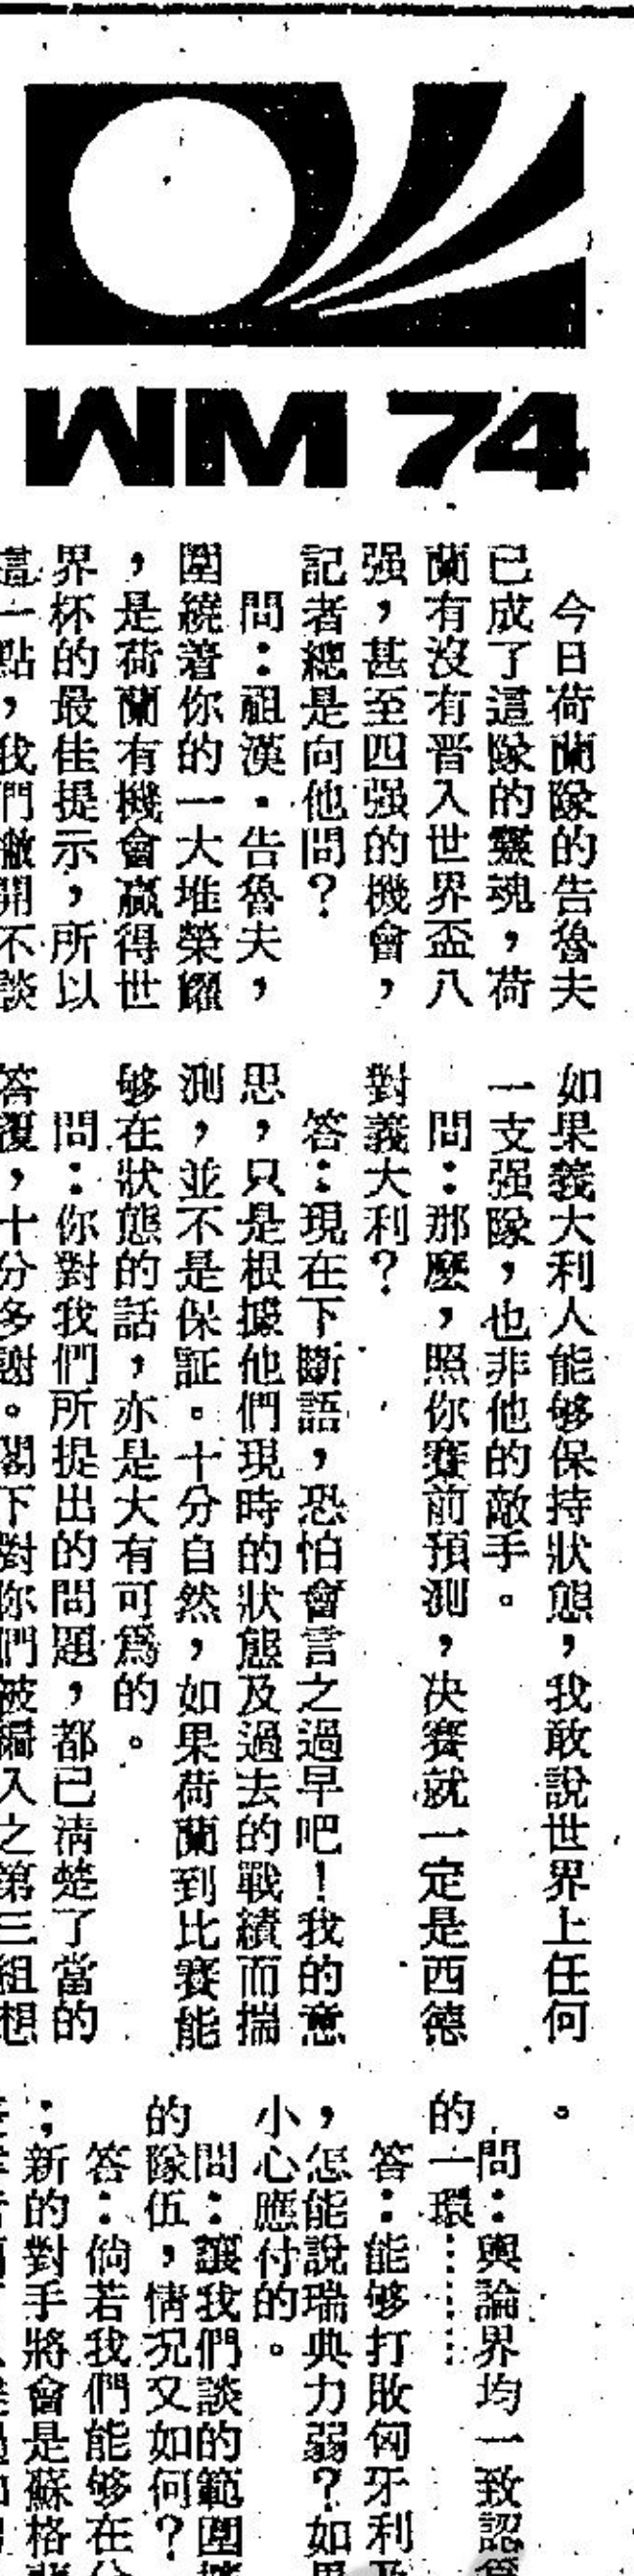 WM 74
今日荷蘭隊的告魯夫
已成了這隊的靈魂，荷
蘭有沒有晋入世界盃八
强，甚至四强的機會，
記者總是向他問？
問：祖漢．告魯夫，
圍繞着你的一大堆榮耀
，是荷蘭有機會贏得世
界杯的最佳提示，所以
這一點，我們撇開不談
如果義大利人能够保持狀態，我敢說世界上任何
一支强隊，也非他的敵手。
問：那麼，照你賽前預測，决賽就一定是西德
對義大利？
答：現在下斷語，恐怕會言之過早吧！我的意
思，只是根據他們現時的狀態及過去的戰績而揣
測，並不是保証。十分自然，如果荷蘭到比賽能
够在狀態的話，亦是大有可爲的。
問：你對我們所提出的問題，都已清楚了當的
答覆，十分多謝。閣下對你們被編入之第三組想
。
問：輿論界均一致認爲
的一環……
答：能够打敗匈牙利及
，怎能說瑞典力弱？如果
小心應付的。
問：讓我們談的範圍擴
的隊伍，情况又如何？
答：倘若我們能够在分
；新的對手將會是蘇格蘭